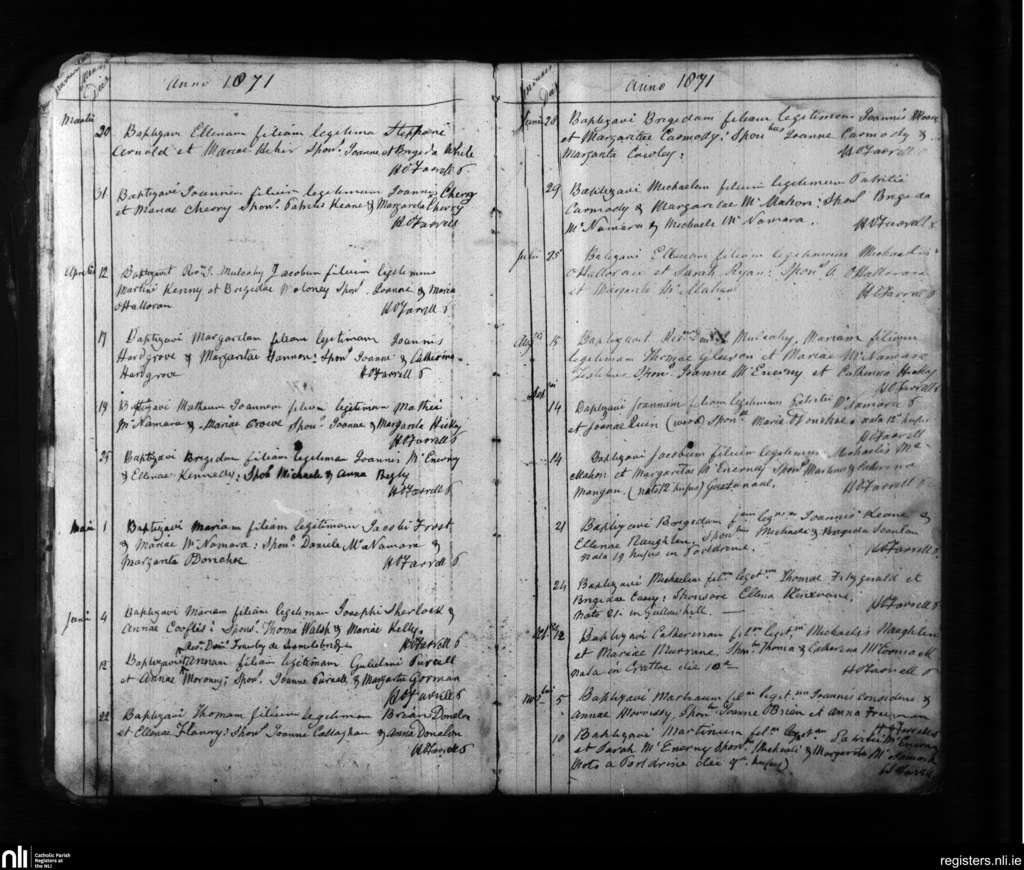 Anno 1871
Martii 20 Baptizavi Ellenam filiam legitima Stephani
Arnold et Mariae Hehir Spons. Joanne et Brigeda White
H O'Farrell
31 Baptizavi Joannem filium legitimum Joannis Cherry
et Mariae Cherry Spons. Patricio Keane & Margarita Cherry
H O'Farrell
Aprilis 12 Baptizavit Revd. J. Mulcahy Jacobum filium legitimum
Martini Kenny et Brigedae Moloney Spons. Joanne & Maria
O'Halloran
H O'Farrell
17 Baptizavi Margaretam filiam legitimam Joannis
Hardgrove & Margaritae Hannon: Spons. Joanne & Catherina
Hardgrove H O'Farrell
19 Baptizavi Matheum Joannem filium legitimum Mathei
McNamara & Mariae Crowe Spons. Joanne & Margarita Hickey
H O'Farrell
25 Baptizavi Brigedam filiam legitimam Joannis McEnerny
& Ellenae Kennedy: Spons. Michaele & Anna Begly
H O'Farrell
Maii 1 Baptizavi Mariam filiam legitimam Jacobi Frost
& Mariae McNamara: Spons. Daniele McNamara &
Margarita Donahoe H O'Farrell
Junii 4 Baptizavi Mariam filiam legitimam Josephi Sherlock &
Annae : Spons. Thoma Walsh & Mariae Kelly.
H O'Farrell
12 Baptizavit Annam filiam legitimam Gulielmi Purcell
et Annae Moroney; Spons. Joanne Purcell & Margarita Gorman
H O'Farrell
22 Baptizavi Thomam filium legitimum Brian Donalon
et Ellenae Flanry: Spons. Joanne Callaghan & Annie Donalon
H O'Farrell
Anno 1871
Junii 28 Baptizavi Brigedam filiam legitimam Joannis
et Margaritae Carmody: Sponbus Joanne Carmody &
Margarita Cawley: H O'Farrell
29 Baptizavi Michaelem filium legitimum Patritii
Carmody & Margaritae McMahon: Spons Brigeda
McNamara & Michaele McNamara. H O'Farrell
Julii 25 Batizavi Ellenam filiam legitimam Michaelis
O'Halloran et Sarah Ryan: Spons. O'Halloran
et Margarita McMahon
H O'Farrell
Augti 15 Baptizavit Revdus Mulcahy, Mariam filiam
legitimam Thomae Gleeson et Mariae McNamara
Spons. Joanne McEnerny et Catherina Hickey
H O'Farrell
Septbri 14 Baptizavi Joannam filiam legitimam Patritii McNamara
et Joanae Quin Spons. Maria Donohoe. nata 12 hujus
H O'Farrell
14 Baptizavi Jacobum filium legitimum Michaelis Mc
Mahon et Margaritas McEnerny Spons. Martino & Catherina
Mangan. (nato 12 hujus) H O'Farrell
21 Baptizavi Brigedam fiam legitam Joannis Keane &
Ellenae Naughten, Sponbus Michaele & Brigeda Scanlan
nata 19 hujus in Portdrine. H O'Farrell
24 Baptizavi Michaelem filum legitum Thomae Fitzgerald et
Brigedae Casey: Sponsore Ellena
Nato 21. in Gullowhill. — H O'Farrell
Octbr 12 Baptizavi Catherinam filam legitam Michaelis Naughten
et Mariae Murrane, Sponbus Thoma & Catherina McCormack
nata in Cratloe die 10 H O'Farrell
Novbri 5 Baptizavi Matheum filum legitum Joannis Considine &
Annae Morrissy, Spons. Joanne O'Brien et Anna Freeman
H O'Farrell
10 Baptizavi Martinum filum legitum Patritii McEnerny
et Sarah McEnerny Spons. Michaele & Margarita McNamara
Nato a Portdrine die 9 hujus)
H O'Farrell
nli Catholic Parish
Registers at
the NLI
registers.nli.ie